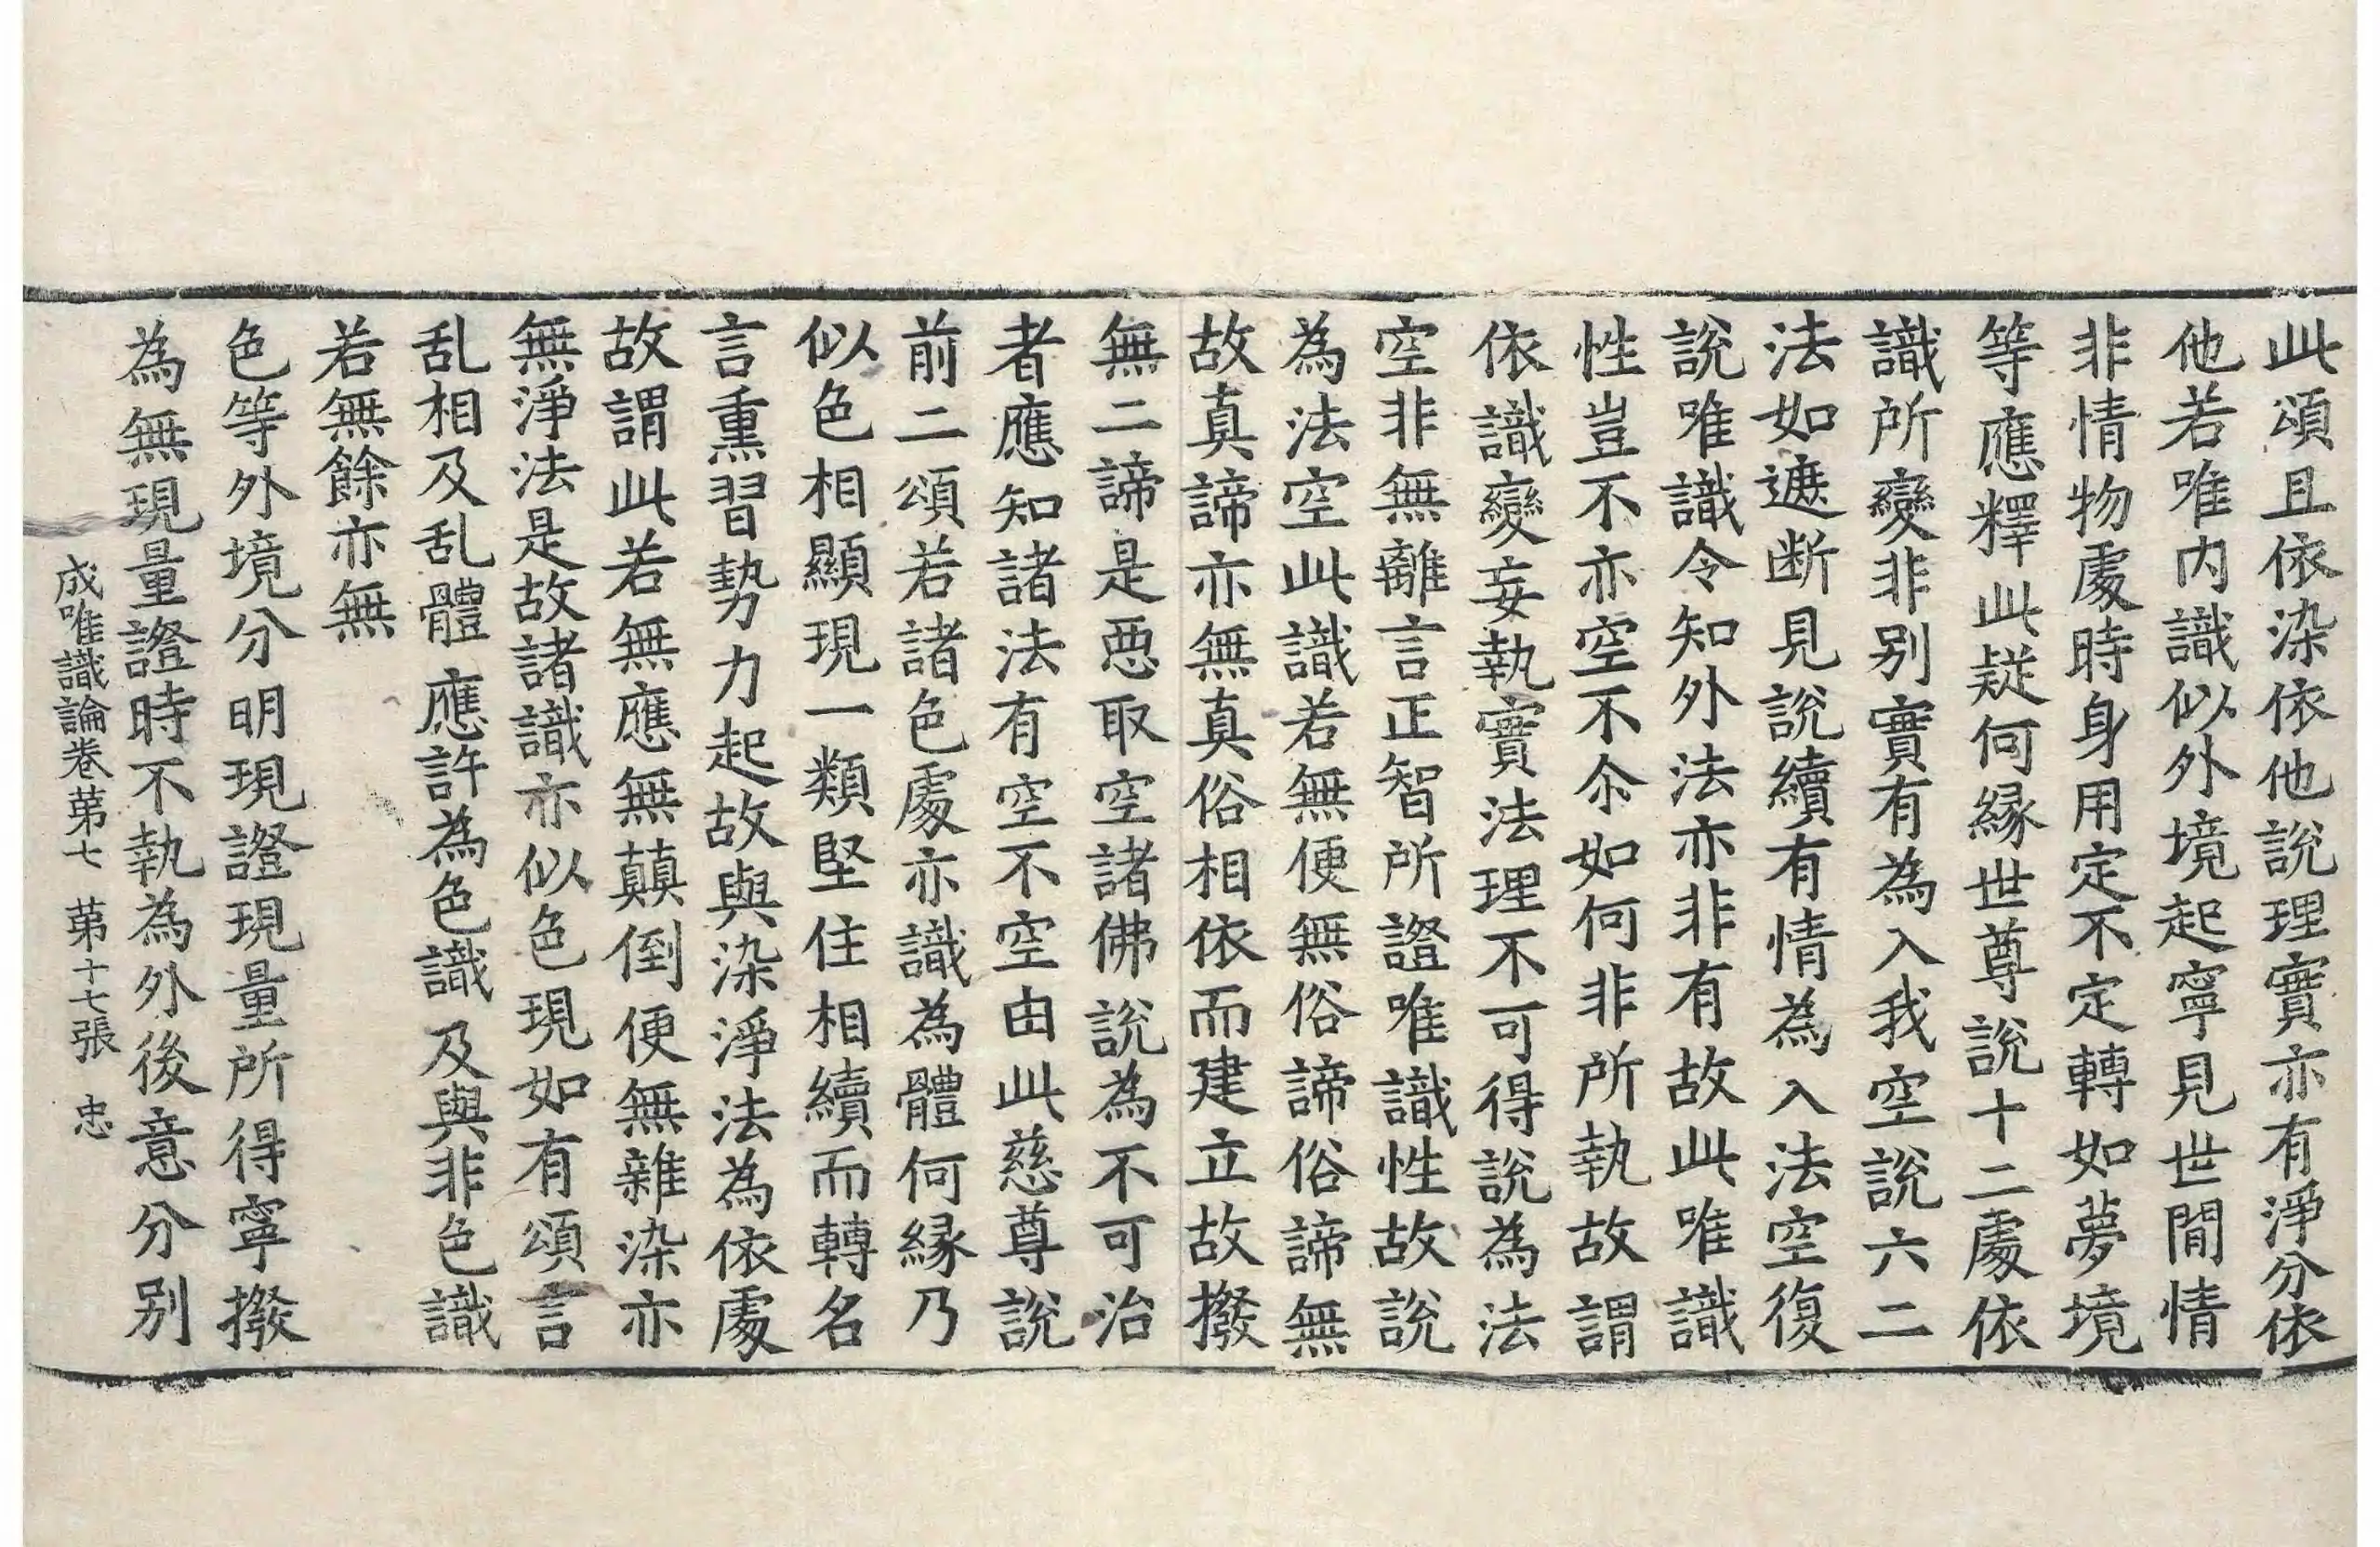 此頌且依染依他說理實亦有淨分依
他若唯内識似外境起寧見世間情
非情物處時身用定不定轉如夢境
等應釋此疑何縁世尊說十二處依
識所變非别實有為入我空說六二
法如遮断見說續有情為入法空復
說唯識令知外法亦非有故此唯識
性豈不亦空不尒如何非所執故謂
依識變妄執實法理不可得說為法
空非無離言正智所證唯識性故說
為法空此識若無便無俗諦俗諦無
故真諦亦無真俗相依而建立故撥
無二諦是惡取空諸佛說為不可治
者應知諸法有空不空由此慈尊說
前二頌若諸色處亦識為體何縁乃
似色相顯現一類堅住相續而轉名
言熏習勢力起故與染淨法為依處
故謂此若無應無顛倒便無雜染亦
無淨法是故諸識亦似色現如有頌言
乱相及乱體 應許為色識 及與非色識
若無餘亦無
色等外境分明現證現量所得寧撥
為無現量證時不執為外後意分别
成唯識論卷苐七 苐十七張 忠